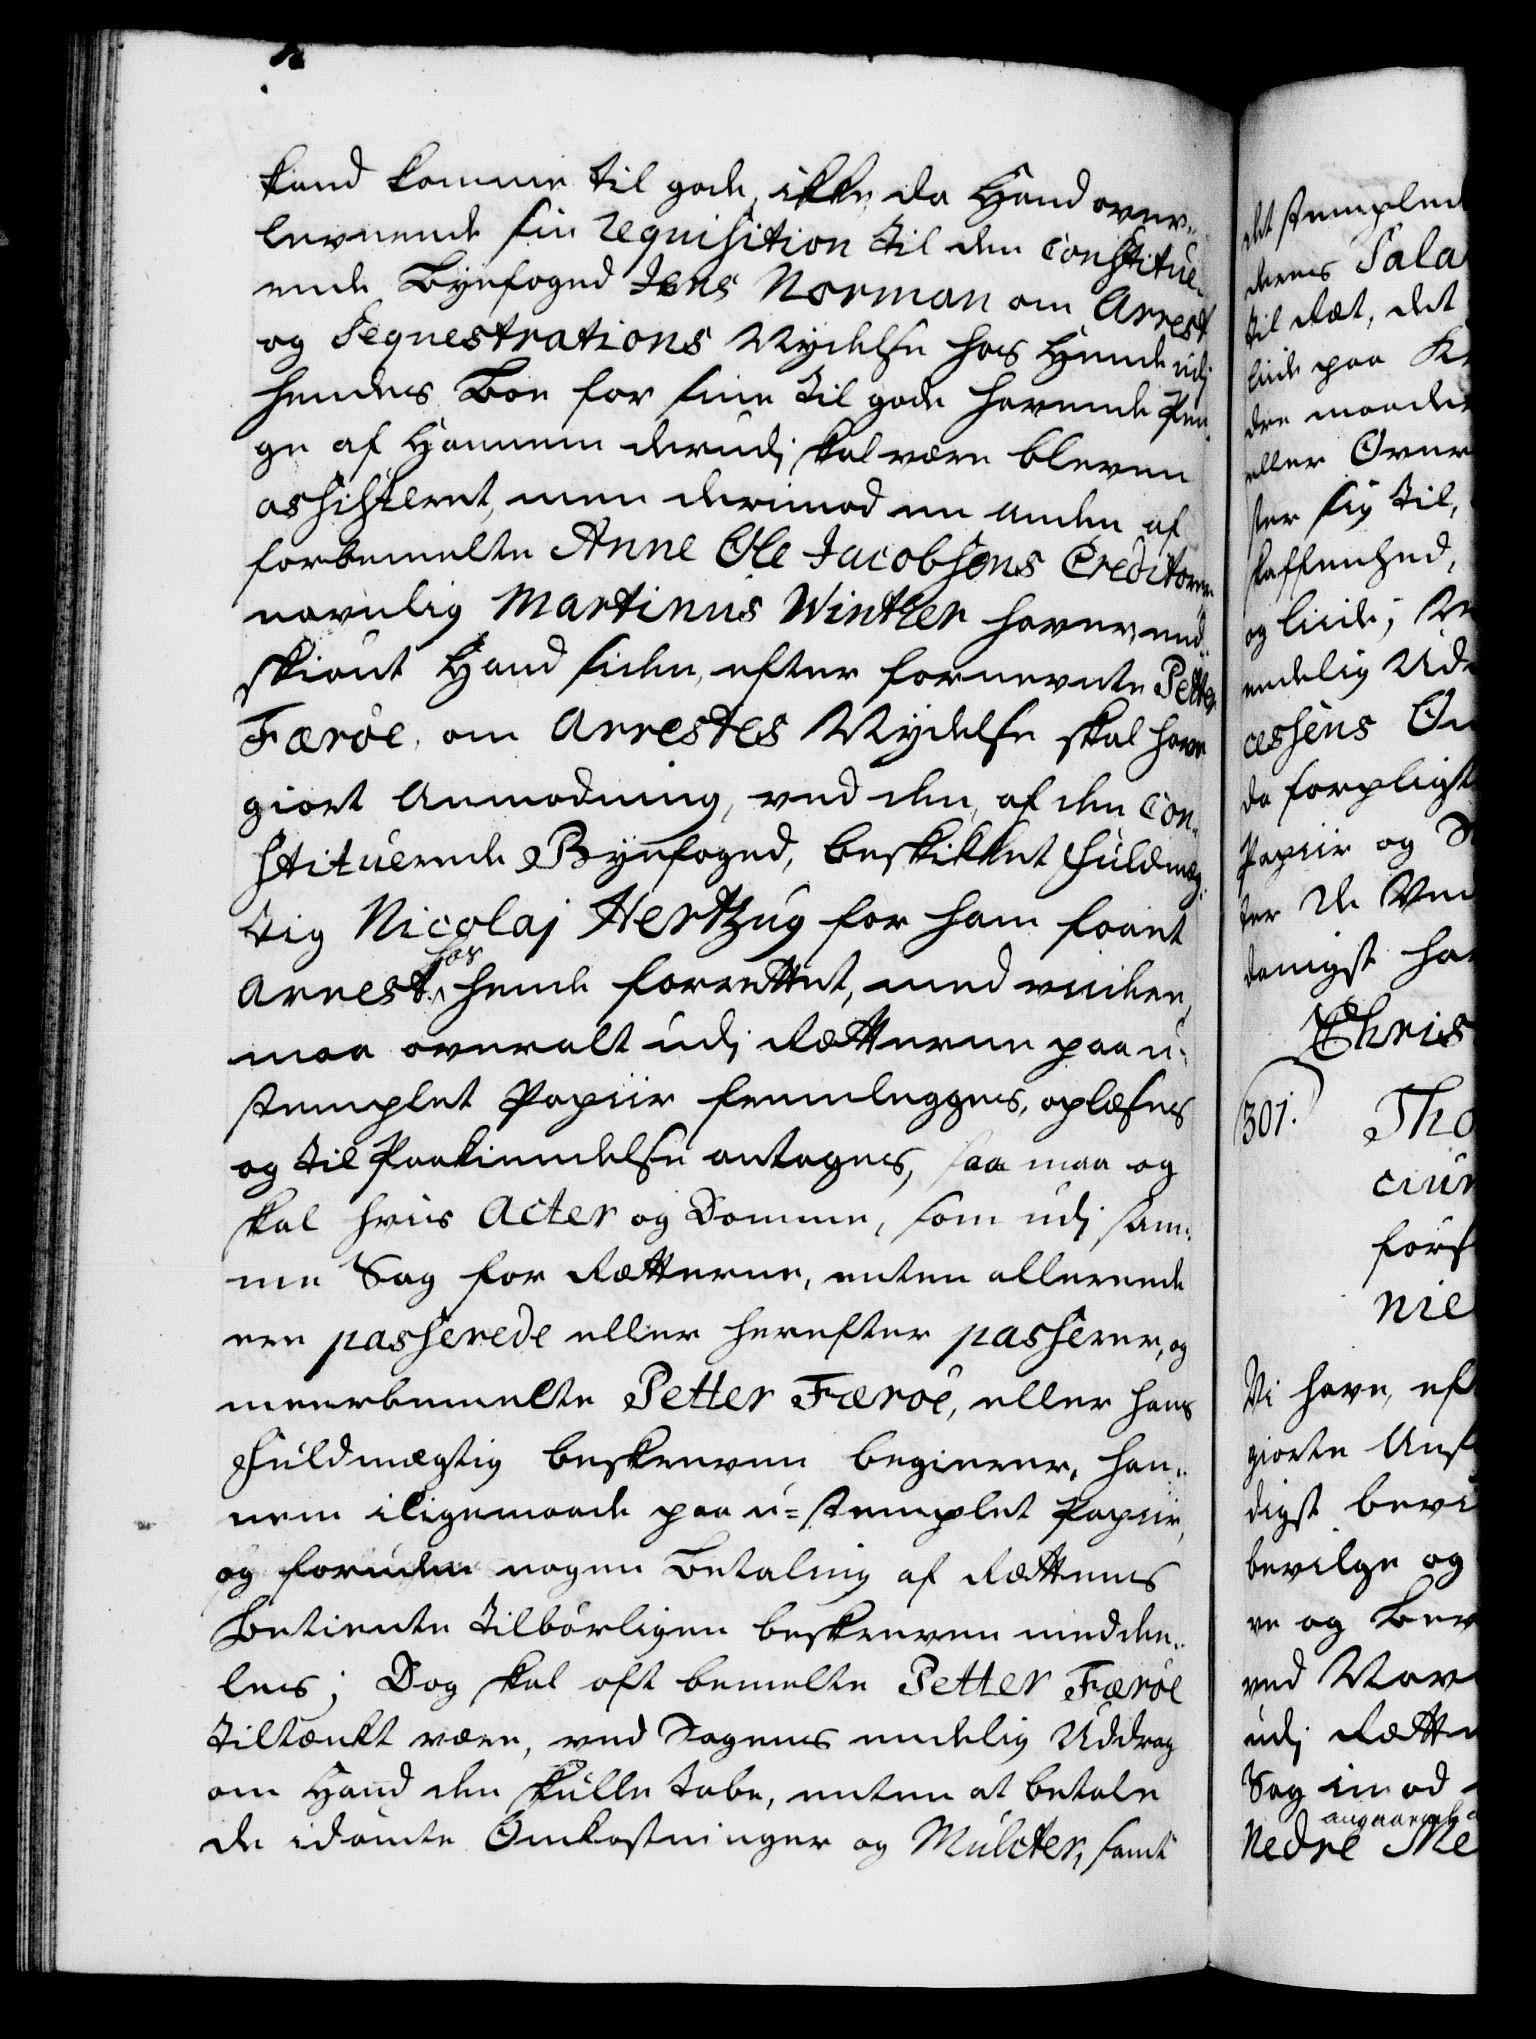 kand komme til gode, ikke da Hand over-
leverede sin Requisition til den Constitue-
rede Byefoged Jens Norman om Arrest
og Seqvestrations Nydelse hos Hende udj
hendes Boe for sine til gode havende Pen-
ge af Hannem derudj skal være bleven
assisteret, men derimod en anden af
forbemelte Anne Ole Jacobsens Creditorer
navnlig Martinus Winther haver, end-
skiønt Hand siden, efter fornevnte Petter
Færöe, om Arrestes Nydelse skal have
giort Anmodning, ved den, af den Con-
stituerede Byefoged, beskikket Fuldmæg-
tig Nicolaj Hertzug for ham faaet
Arrest hos hende forrettet, med videre,
maa overalt udj Rætterne paa u-
stemplet Papiir fremlegges, oplæses
og til Paakiendelse antages, saa maa og
skal hvis Acter og Domme, som udj sam-
me Sag for Rætterne, enten allereede
ere passerede eller herefter passerer, og
meerbemelte Petter Færöe, eller hans
Fuldmægtig beskreven begierer, han-
nem iligemaade paa u-stemplet Papiir,
og foruden nogen Betaling af Rættens
Betiente tilbørligen beskreven meddee-
les; Dog skal oft bemelte Petter Færöe
tiltænkt være, ved Sagens endelig Uddrag
om Hand den skulle tabe, enten at betale
de idømte Omkostninger og Mulcter, samt
det stempled
deres Sala
til Ræt, det
liide paa K
dre maade
eller Over
ter sig til,
skaffenhed,
og liide; N
endelig Udr
cessens O
da forpligt
Papiir og S
ter de Ved
danigst ha
Chris
301. Tho
ciur
forf
nie
Vi have, eft
giorte Ans
digst bevi
bevilge og
ve og Bev
ved Nav
udj Rætte
Sag imod
angaaende
Nedre Me